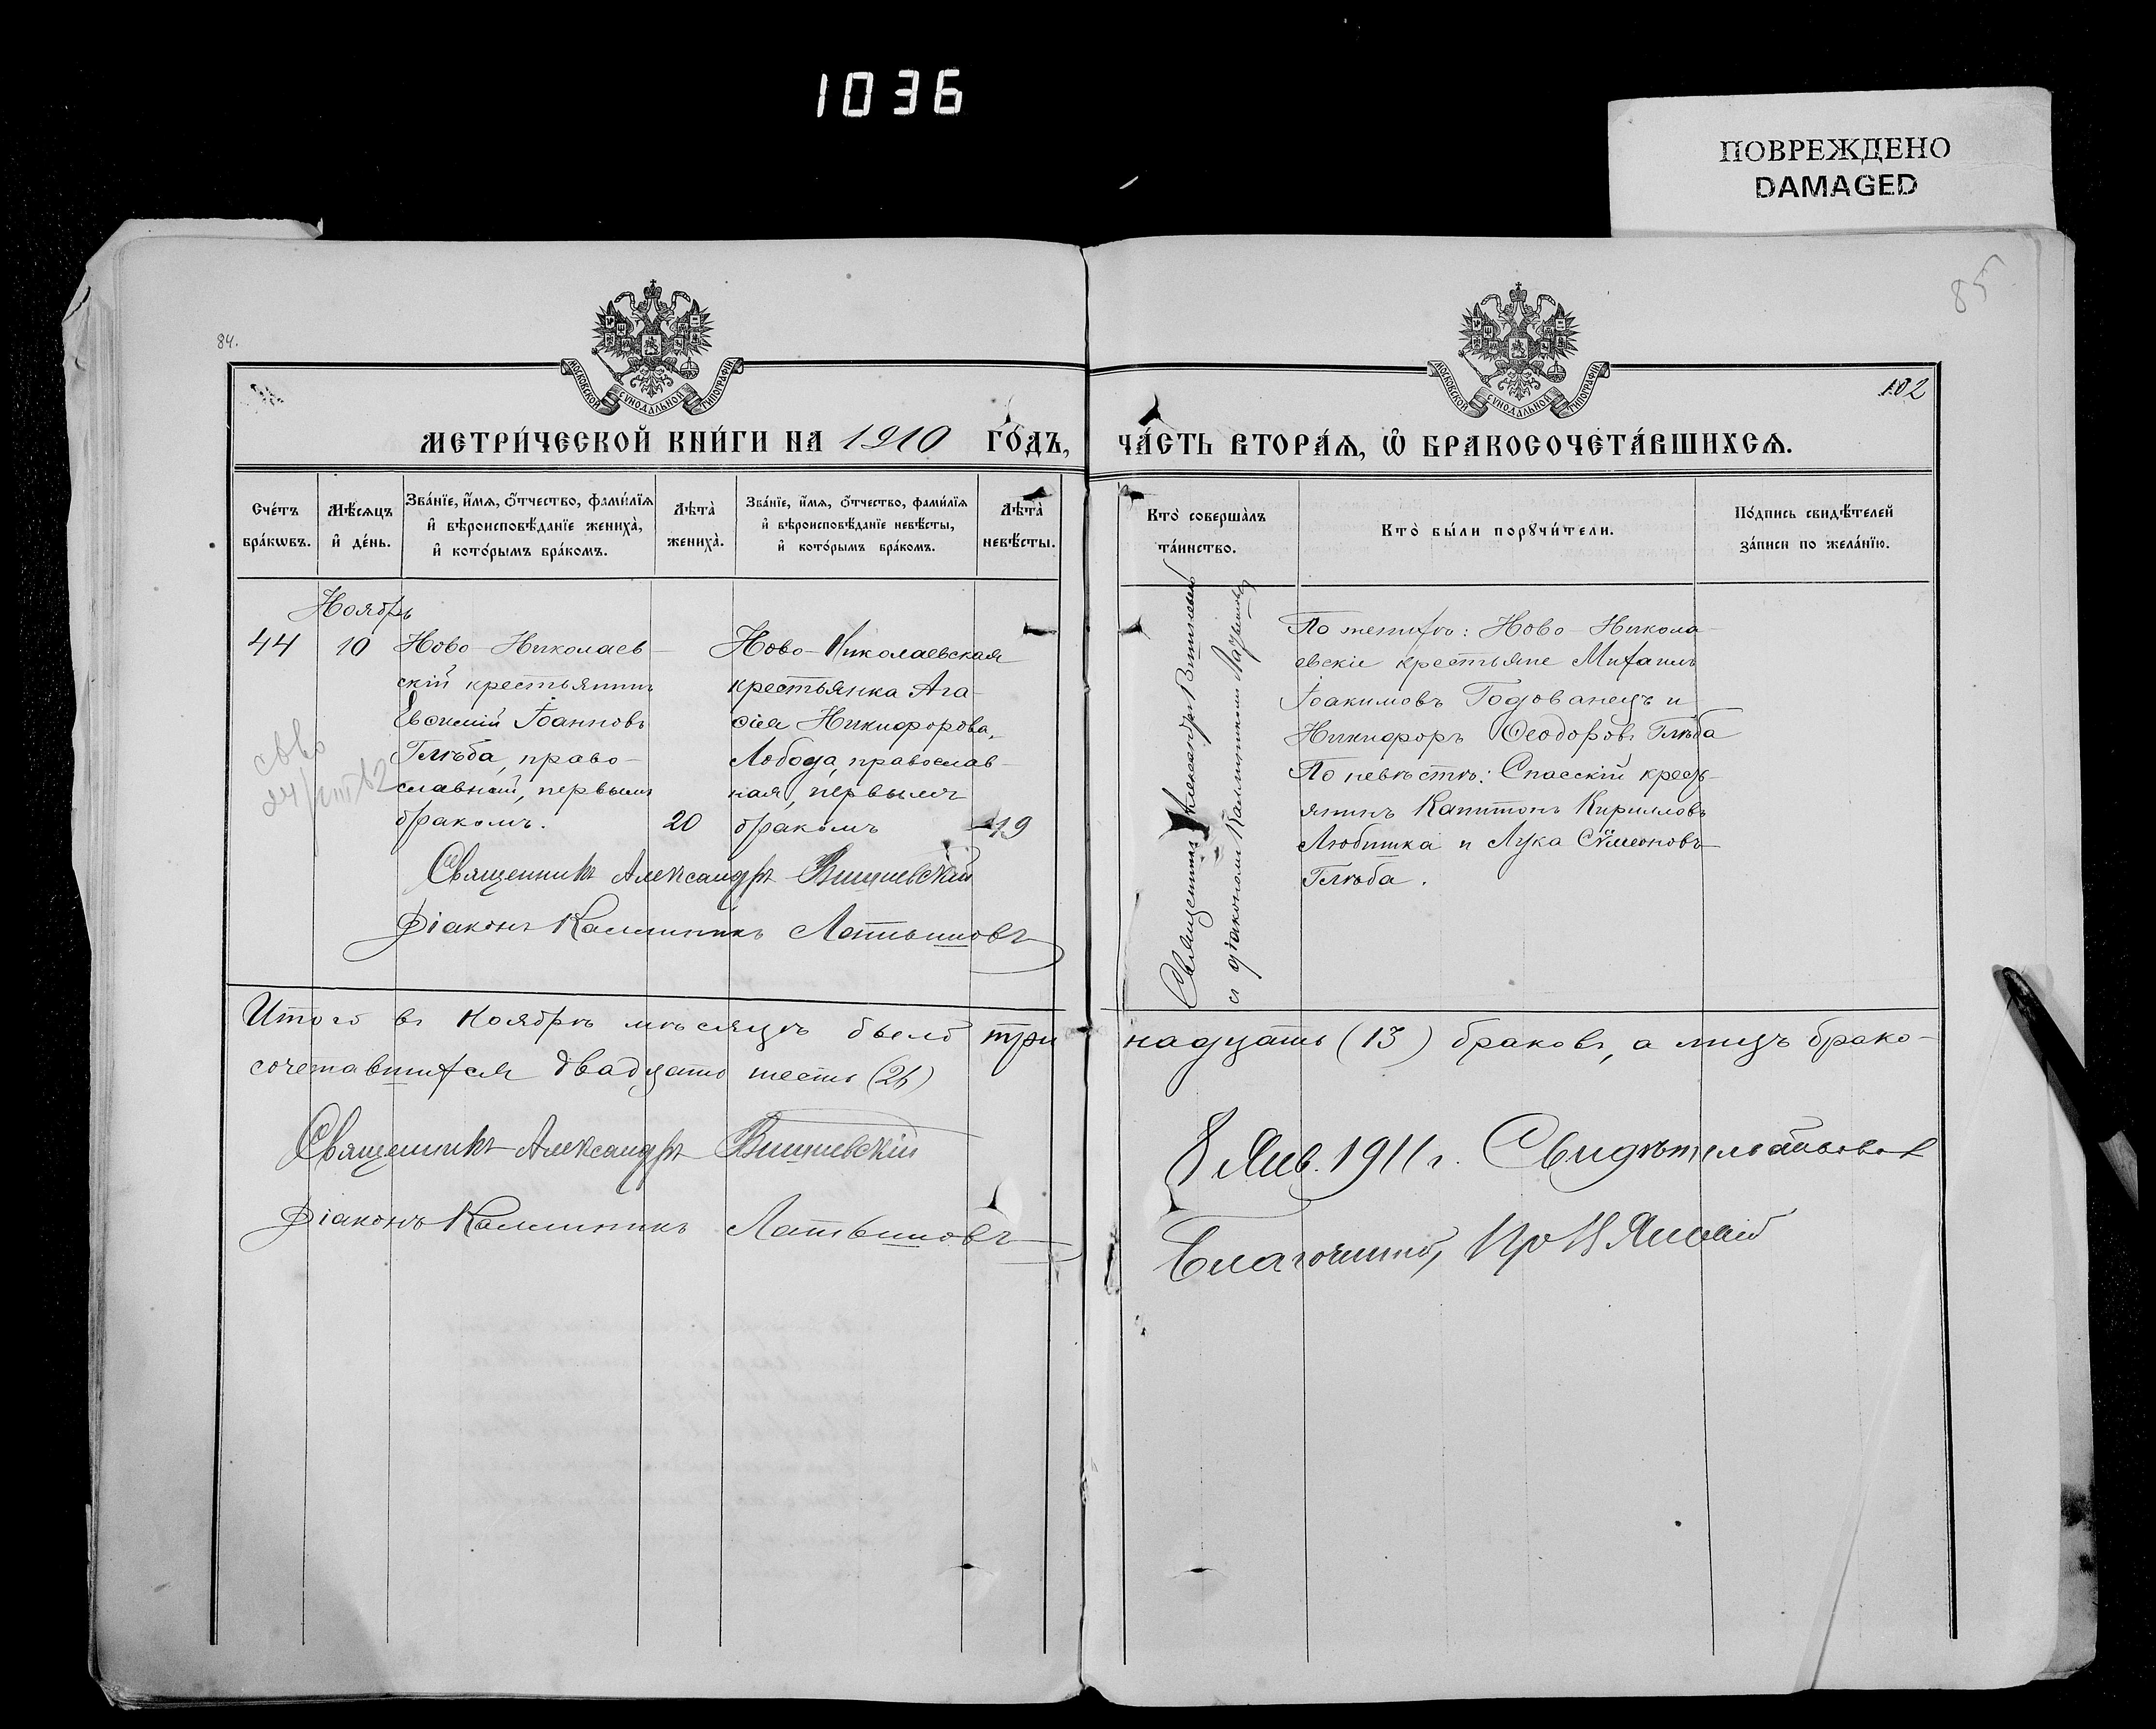 1036
ПОВРЕЖДЕНО
DAMAGED
84.
85
102
МОСКОВСКОЙ СѴНОДАЛЬНОЙ ТИПОГРАФІИ
МОСКОВСКОЙ СѴНОДАЛЬНОЙ ТИПОГРАФІИ
МЕТРИ́ЧЕСКОЙ КНИ́ГИ НА 1910 ГО́ДЪ,
ЧА́СТЬ ВТОРА́Ѧ, Ѡ҆ БРАКОСОЧЕТА́ВШИХСѦ.
Сче́тъ бра́кѡвъ.
Мѣ́сѧцъ и҆ де́нь.
Зва́нїе, и҆́мѧ, ѻ҆́тчество, фами́лїѧ и҆ вѣроисповѣ́данїе жениха̀, и҆ кото́рымъ бра́комъ.
Лѣта̀ жениха̀.
Зва́нїе, и҆́мѧ, ѻ҆́тчество, фами́лїѧ и҆ вѣроисповѣ́данїе невѣ́сты, и҆ кото́рымъ бра́комъ.
Лѣта̀ невѣ́сты.
Кто̀ соверша́лъ та́инство.
Кто̀ бы́ли порꙋчи́тели.
По́дпись свидѣ́телей за́писи по жела́нїю.
Ноябрь
44
10
Ново-Николаев-
скій крестьянинъ
Евѳимій Іоанновъ
Глѣба, право-
славный, первымъ
бракомъ.
20
Ново-Николаевская
крестьянка Ага-
ѳія Никифорова
Лобода, православ-
ная, первымъ
бракомъ
19
Священникъ Александръ Вишневскій
съ діакономъ Каллиникомъ
По женихѣ: Ново-Никола-
евскіе крестьяне Михаилъ
Іоакимовъ Годованецъ и
Никифоръ Ѳеодоровъ Глѣба
По невѣстѣ: Спасскій кресть-
янинъ Капитонъ Кирилловъ
Любишка и Лука Сѵмеоновъ
Глѣба.
Священникъ Александръ Вишневскій
Діаконъ Каллиникъ Латышовъ
Итого въ Ноябрѣ мѣсяцѣ было три
надцать (13) браковъ, а лицъ брако-
сочетавшихся двадцать шесть (26)
Священникъ Александръ Вишневскій
Діаконъ Каллиникъ Латышовъ
8 Янв. 1911 г. Свидѣтельствовал
Благочинный,